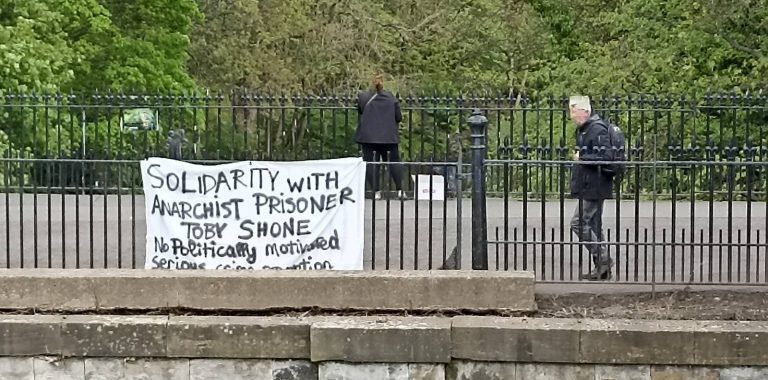 SOLIDARITY WITH
ANARCHIST PRISONER
TOBY SHONE
No Politically motivated
serious crime